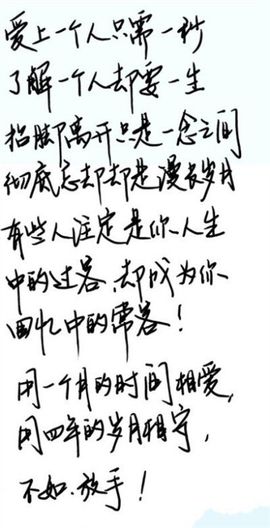 爱上一个人只需一秒
了解一个人却要一生
抬脚离开只是一念之间
彻底忘却却是漫长岁月
有些人注定是你人生
中的过客、却成为你
回忆中的常客！
用一个月的时间相爱，
用四年的岁月相守，
不如.放手！